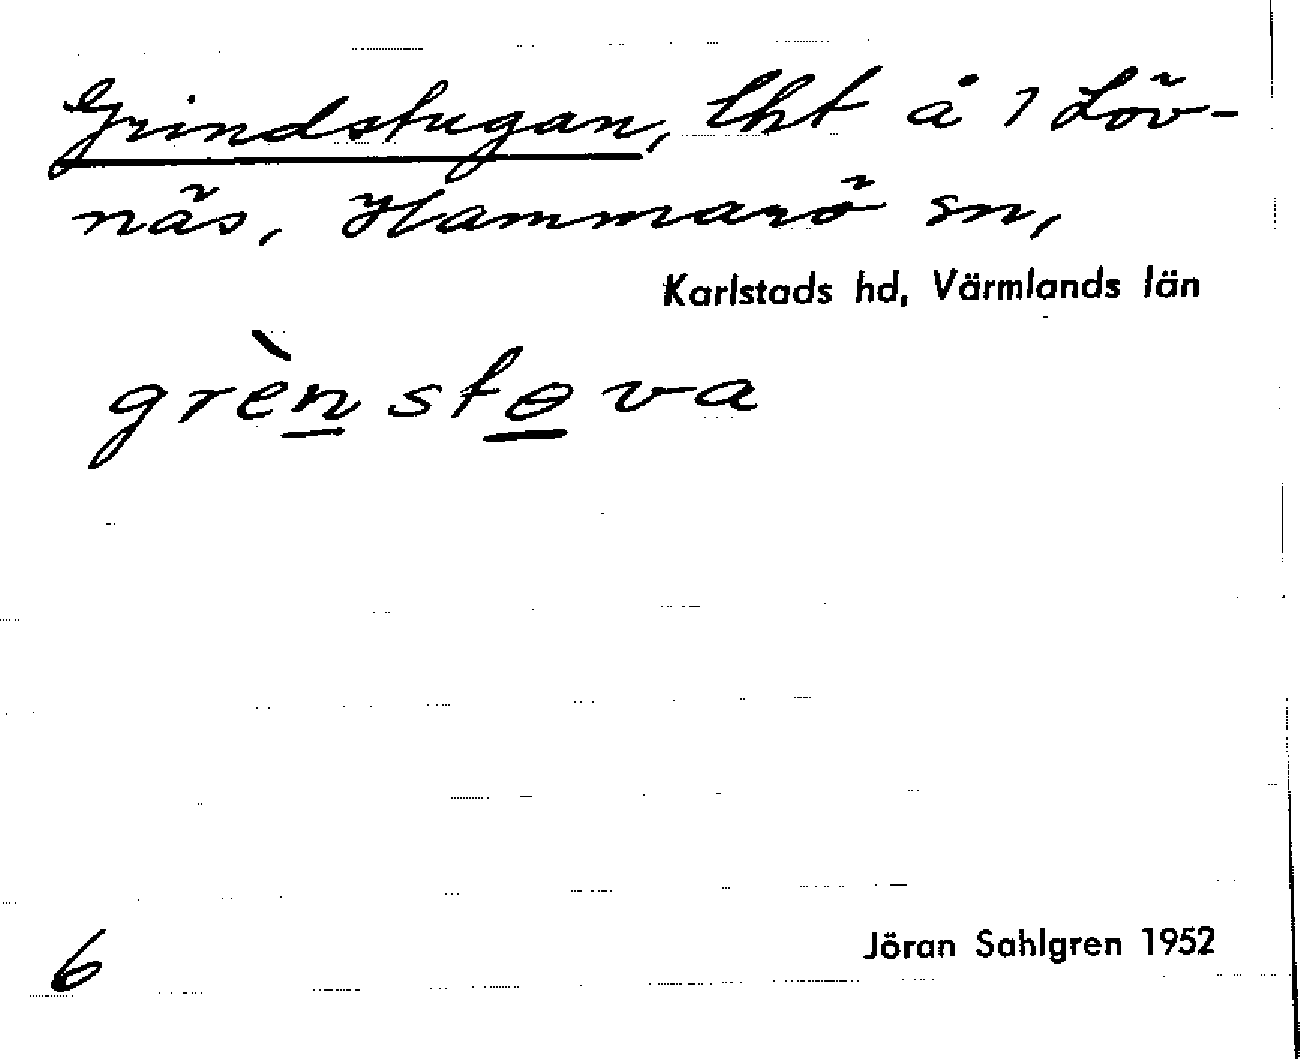 Grindstugan, lht å 1 Löv-
näs, Hammarö sn,
Karlstads hd, Värmlands län
grènstɵva
6
Jöran Sahlgren 1952